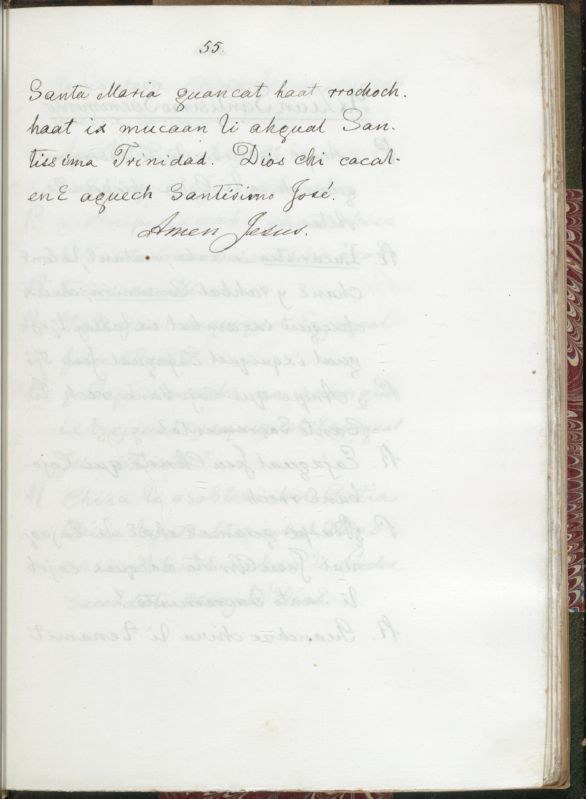 55.
Santa Maria guancat haat rrochoch.
haat ix mucaan li ahgual San-
tissima Trinidad. Dios chi cacal-
enƐ aguech Santisimo José.
Amen Jesus.